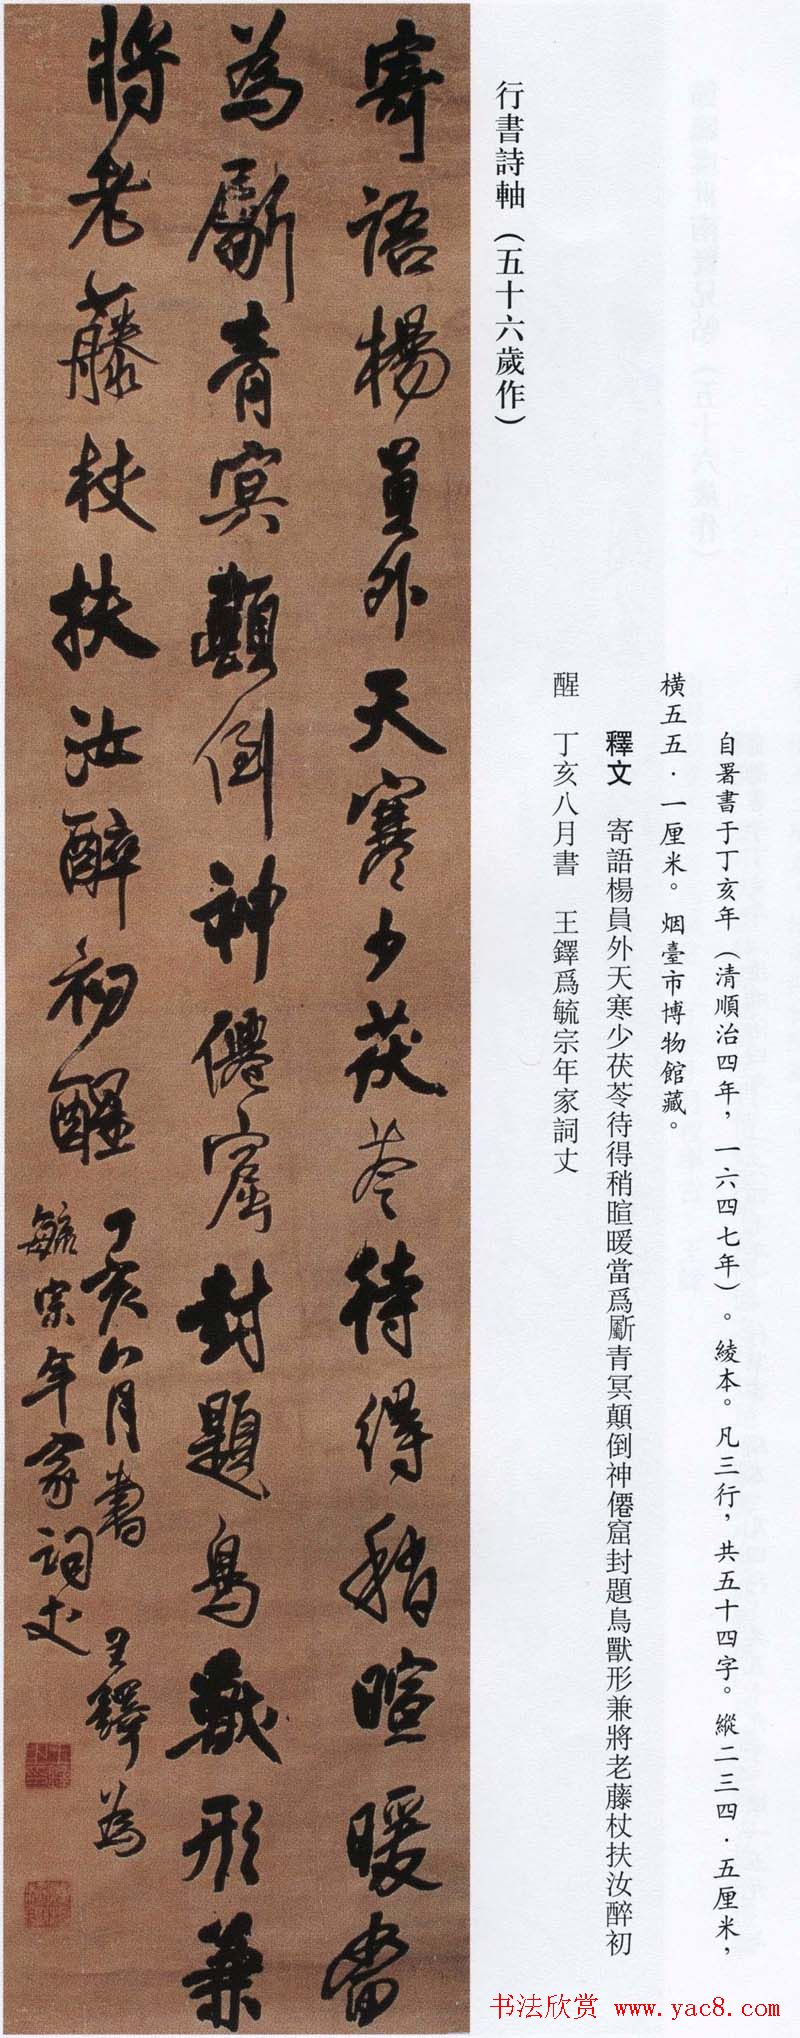 自署書于丁亥年（清順治四年，一六四七年）。綾本。凡三行，共五十四字。縱二三四·五厘米，
橫五五·一厘米。烟臺市博物館藏。
釋文　寄語楊員外天寒少茯苓待得稍暄暖當爲斸青冥顛倒神僊窟封題鳥獸形兼將老藤杖扶汝醉初
醒　丁亥八月書　王鐸爲毓宗年家詞丈
行書詩軸（五十六歲作）
寄語楊員外天寒少茯苓待得稍暄暖當
為斸青冥顛倒神僊窟封題鳥獸形兼
將老藤杖扶汝醉初醒　丁亥八月書　王鐸為
毓宗年家詞丈
书法欣赏 www.yac8.com